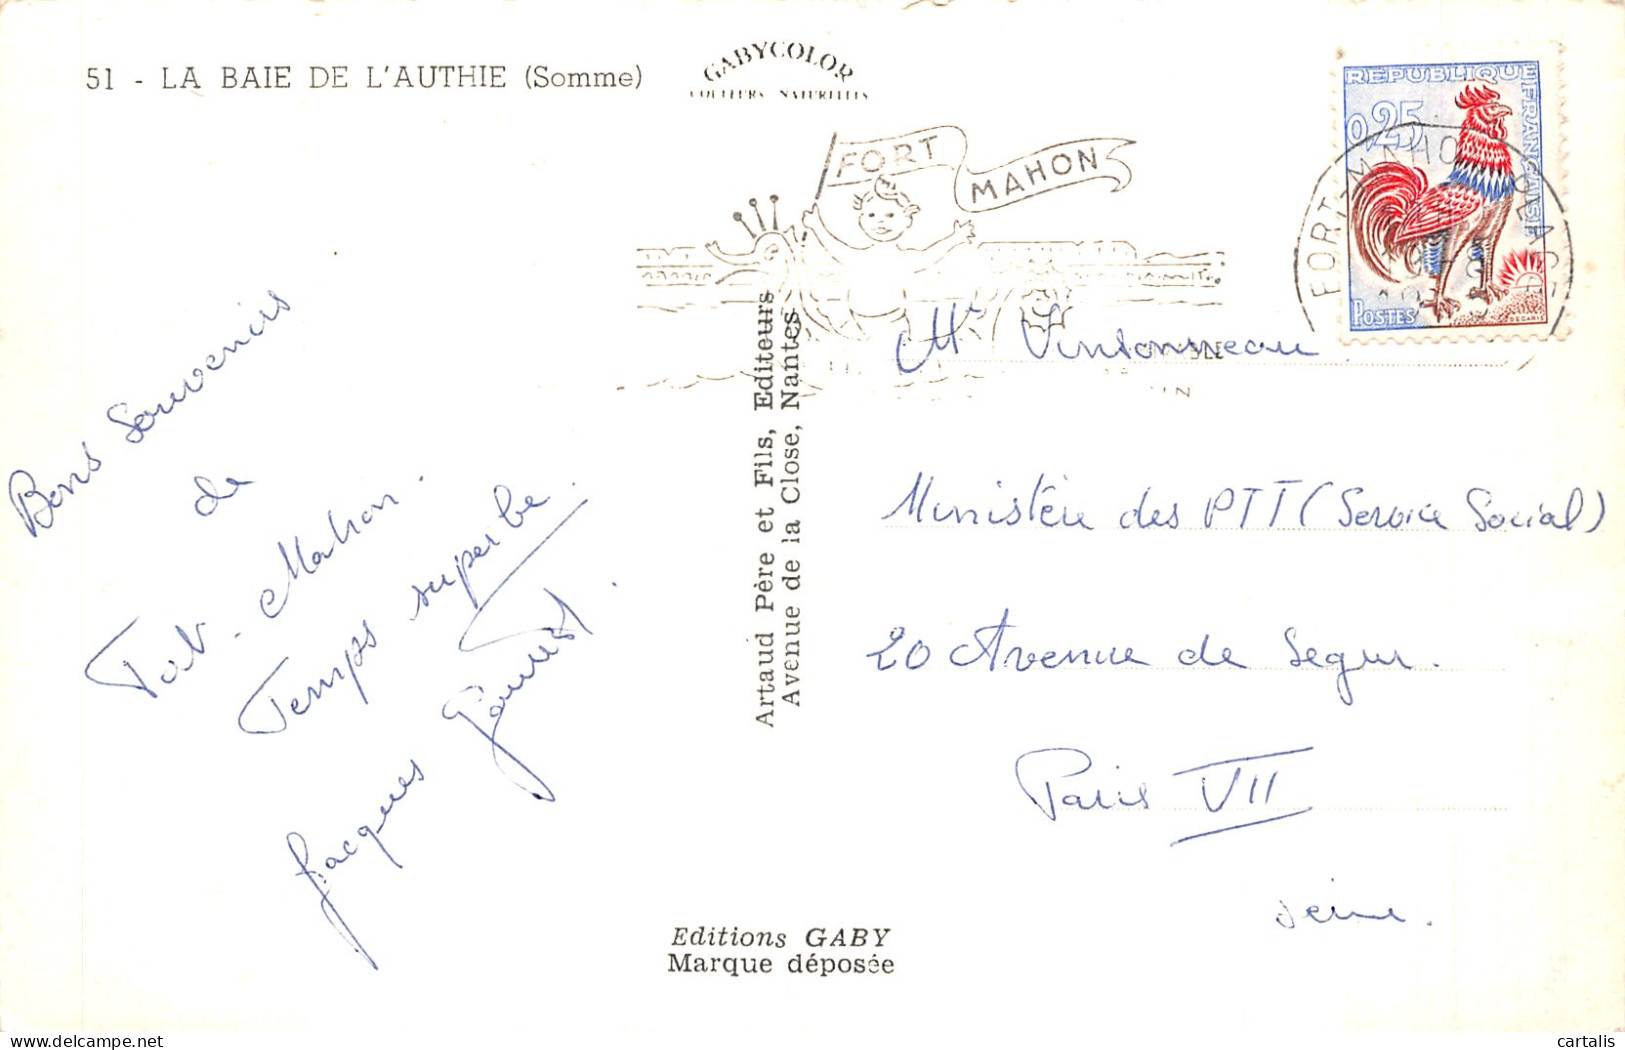 51 - LA BAIE DE L'AUTHIE (Somme)
GABYCOLOR
COULEURS NATURELLES
FORT MAHON
REPUBLIQUE FRANCAISE
0,25
POSTES
DECARIS
FORT-MAHON PLAGE
Bons Souvenirs
de
Fort-Mahon.
Temps superbe.
Jacques
Artaud Père et Fils, Editeurs
Avenue de la Close, Nantes
Mr Vinsonneau
Ministère des PTT (Service Social)
20 Avenue de Segur.
Paris VII
Seine.
Editions GABY
Marque déposée
cartalis